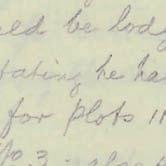 be lodg
stating he ha
for Plots in
No 3